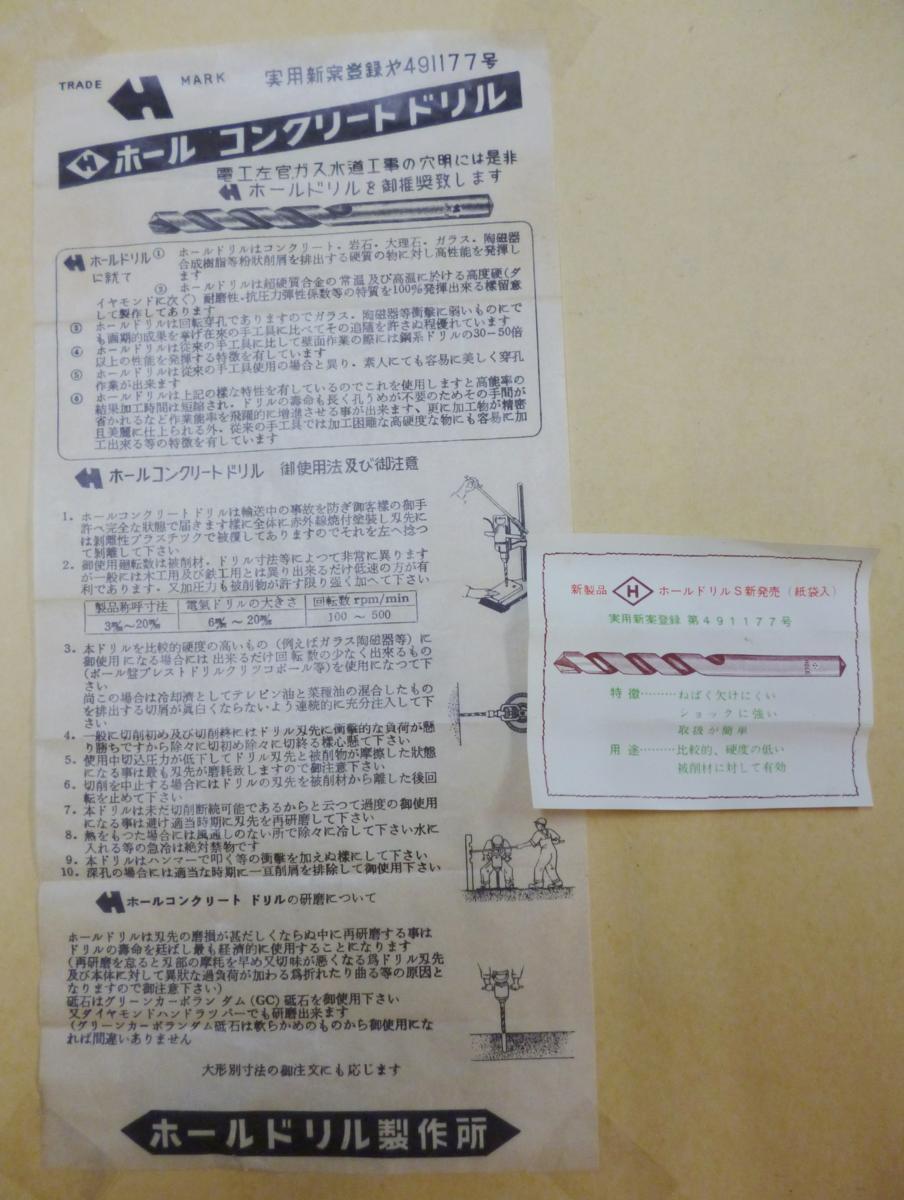 TRADE MARK 実用新案登録や491177号
ホール コンクリートドリル
電工左官ガス水道工事の穴明には是非
ホールドリルを御推奨致します
ホールドリルに就て
① ホールドリルはコンクリート・岩石・大理石・ガラス・陶磁器
合成樹脂等粉状削屑を排出する硬質の物に対し高性能を発揮し
ます
② ホールドリルは超硬質合金の常温及び高温に於ける高度硬(ダ
イヤモンドに次ぐ)耐磨性・抗圧力弾性係数等の特質を100%発揮出来る様留意
して製作してあります
③ ホールドリルは回転穿孔でありますのでガラス、陶磁器等衝撃に弱いものにで
も画期的成果を挙げ在来の手工具に比べてその追随を許さぬ程優れています
④ ホールドリルは従来の手工具に比して壁面作業の際には鋼系ドリルの30-50倍
以上の性能を発揮する特徴を有しています
⑤ ホールドリルは従来の手工具使用の場合と異り、素人にても容易に美しく穿孔
作業が出来ます
⑥ ホールドリルは上記の様な特性を有しているのでこれを使用しますと高能率の
結果加工時間は短縮され、ドリルの寿命も長く孔うめが不要のためその手間が
省かれるなど作業能率を飛躍的に増進させる事が出来ます、更に加工物が精密
且美麗に仕上られる外、従来の手工具では加工困難な高硬度な物にも容易に加
工出来る等の特徴を有しています
ホールコンクリートドリル 御使用法及び御注意
1. ホールコンクリートドリルは輸送中の事故を防ぎ御客様の御手
許へ完全な状態で届きます様に全体に赤外線焼付塗装し刃先に
は剝離性プラスチツクで被覆してありますのでそれを左へ捻つ
て剝離して下さい
2. 御使用廻転数は被削材、ドリル寸法等によつて非常に異ります
が一般には木工用及び鉄工用とは異り出来るだけ低速の方が有
利であります、又加圧力も被削物が許す限り強く加へて下さい
製品称呼寸法 電氣ドリルの大きさ 回転数 rpm/min
3㎜～20㎜ 6㎜～20㎜ 100 ～ 500
3. 本ドリルを比較的硬度の高いもの(例えばガラス陶磁器等)に
御使用になる場合には出来るだけ回転数の少なく出来るもの
(ボール盤ブレストドリルクリツコボール等)を使用になつて下
さい
尚この場合は冷却済としてテレピン油と菜種油の混合したもの
を排出する切屑が真白くならないよう連続的に充分注入して下
さい
4. 一般に切削初め及び切削終にはドリル刃先に衝撃的な負荷が懸
り勝ちですから除々に切初め除々に切終る様心懸て下さい
5. 使用中切込圧力が低下してドリル刃先と被削物が摩擦した状態
になる事は最も刃先が磨耗致しますので御注意下さい
6. 切削を中止する場合にはドリルの刃先を被削材から離した後回
転を止めて下さい
7. 本ドリルは未だ切削断続可能であるからと云つて過度の御使用
になる事は避け適当時期に刃先を再研磨して下さい
8. 熱をもつた場合には風通しのない所で除々に冷して下さい水に
入れる等の急冷は絶対禁物です
9. 本ドリルはハンマーで叩く等の衝撃を加えぬ様にして下さい
10. 深孔の場合には適当な時期に一亘削屑を排除して御使用下さい
ホールコンクリート ドリルの研磨について
ホールドリルは刃先の磨損が甚だしくならぬ中に再研磨する事は
ドリルの寿命を廷ばし最も経済的に使用することになります
(再研磨を怠ると刃部の摩耗を早め又切味が悪くなる為ドリル刃先
及び本体に対して異狀な過負荷が加わる為折れたり曲る等の原因と
なりますので御注意下さい)
砥石はグリーンカーボラン ダム (GC) 砥石を御使用下さい
又ダイヤモンドハンドラツパーでも研磨出来ます
(グリーンカーボランダム砥石は軟らかめのものから御使用にな
れば間違いありません
大形別寸法の御注文にも応じます
ホールドリル製作所
新製品 H ホールドリルS新発売(紙袋入)
実用新案登録 第491177号
特徴………ねばく欠けにくい
ショックに強い
取扱が簡単
用途………比較的、硬度の低い
被削材に対して有効